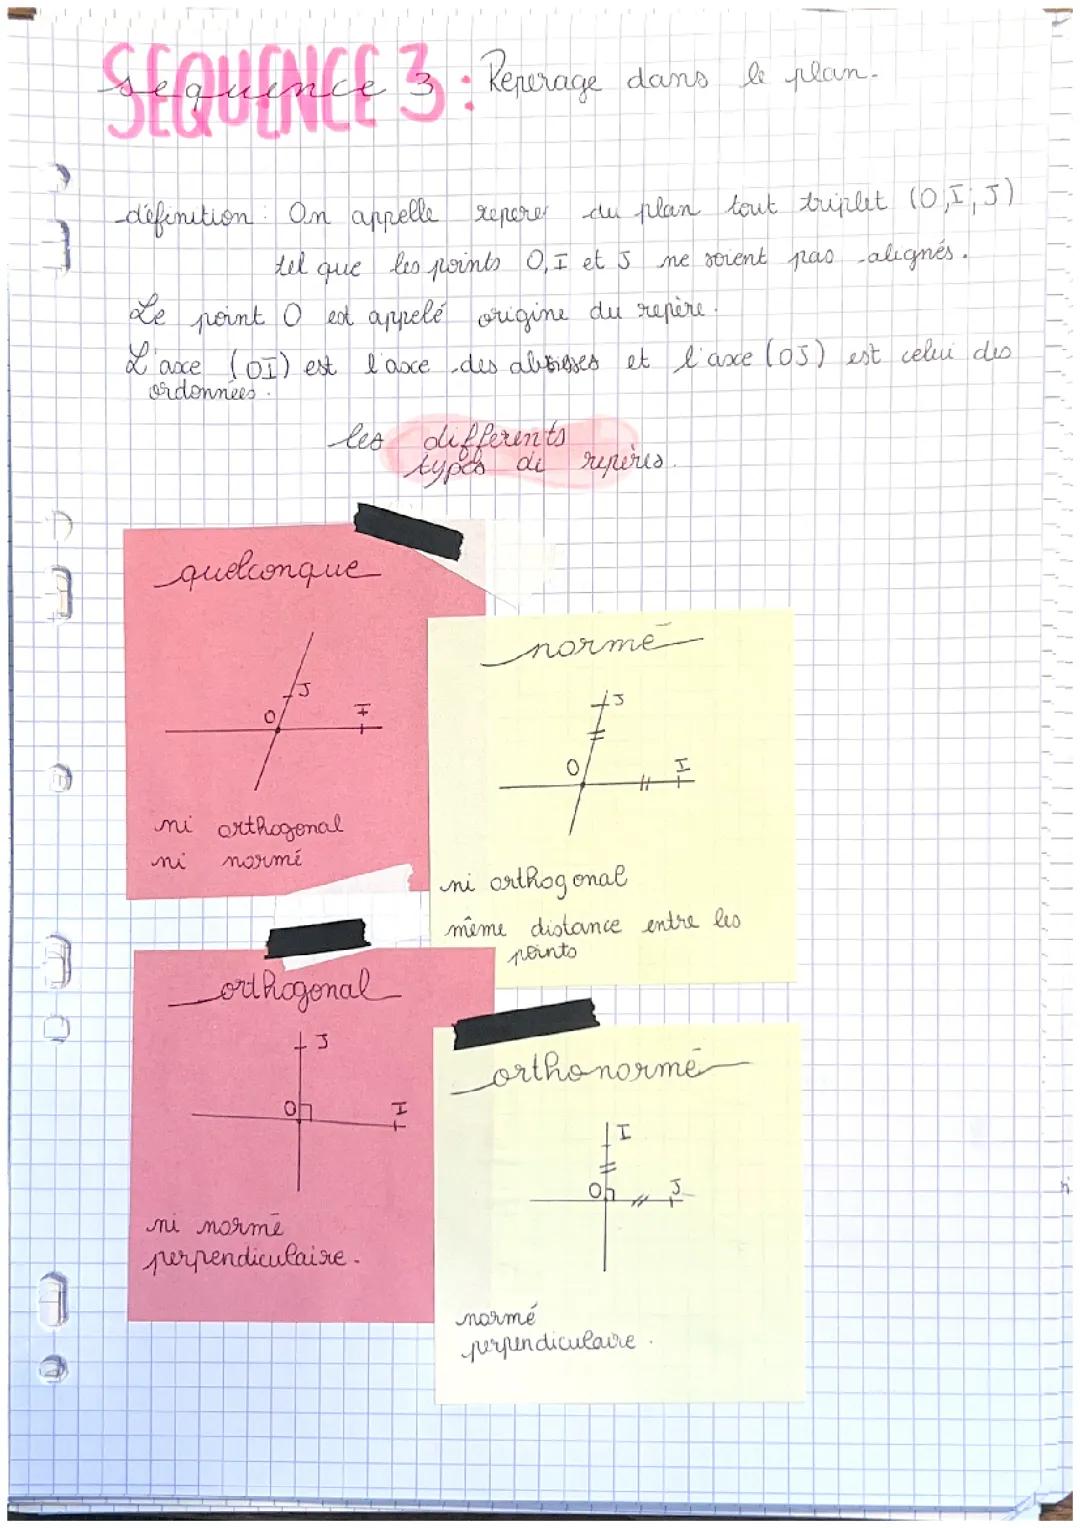 SEQUENCE 3 : Reperage dans le plan.
sequence
définition : On appelle reperer du plan tout triplet (O, I; J)
tel que les points O, I et J ne soient pas alignés.
Le point O est appelé origine du repère.
L'axe (OI) est l'axe des abscisses et l'axe (OJ) est celui des
ordonnées.
les differents
types de repères.
quelconque
J
O
I
ni orthogonal
ni normé
normé
J
O
I
ni orthogonal
même distance entre les
points
orthogonal
J
O
I
ni normé
perpendiculaire.
orthonormé
I
O
J
normé
perpendiculaire.